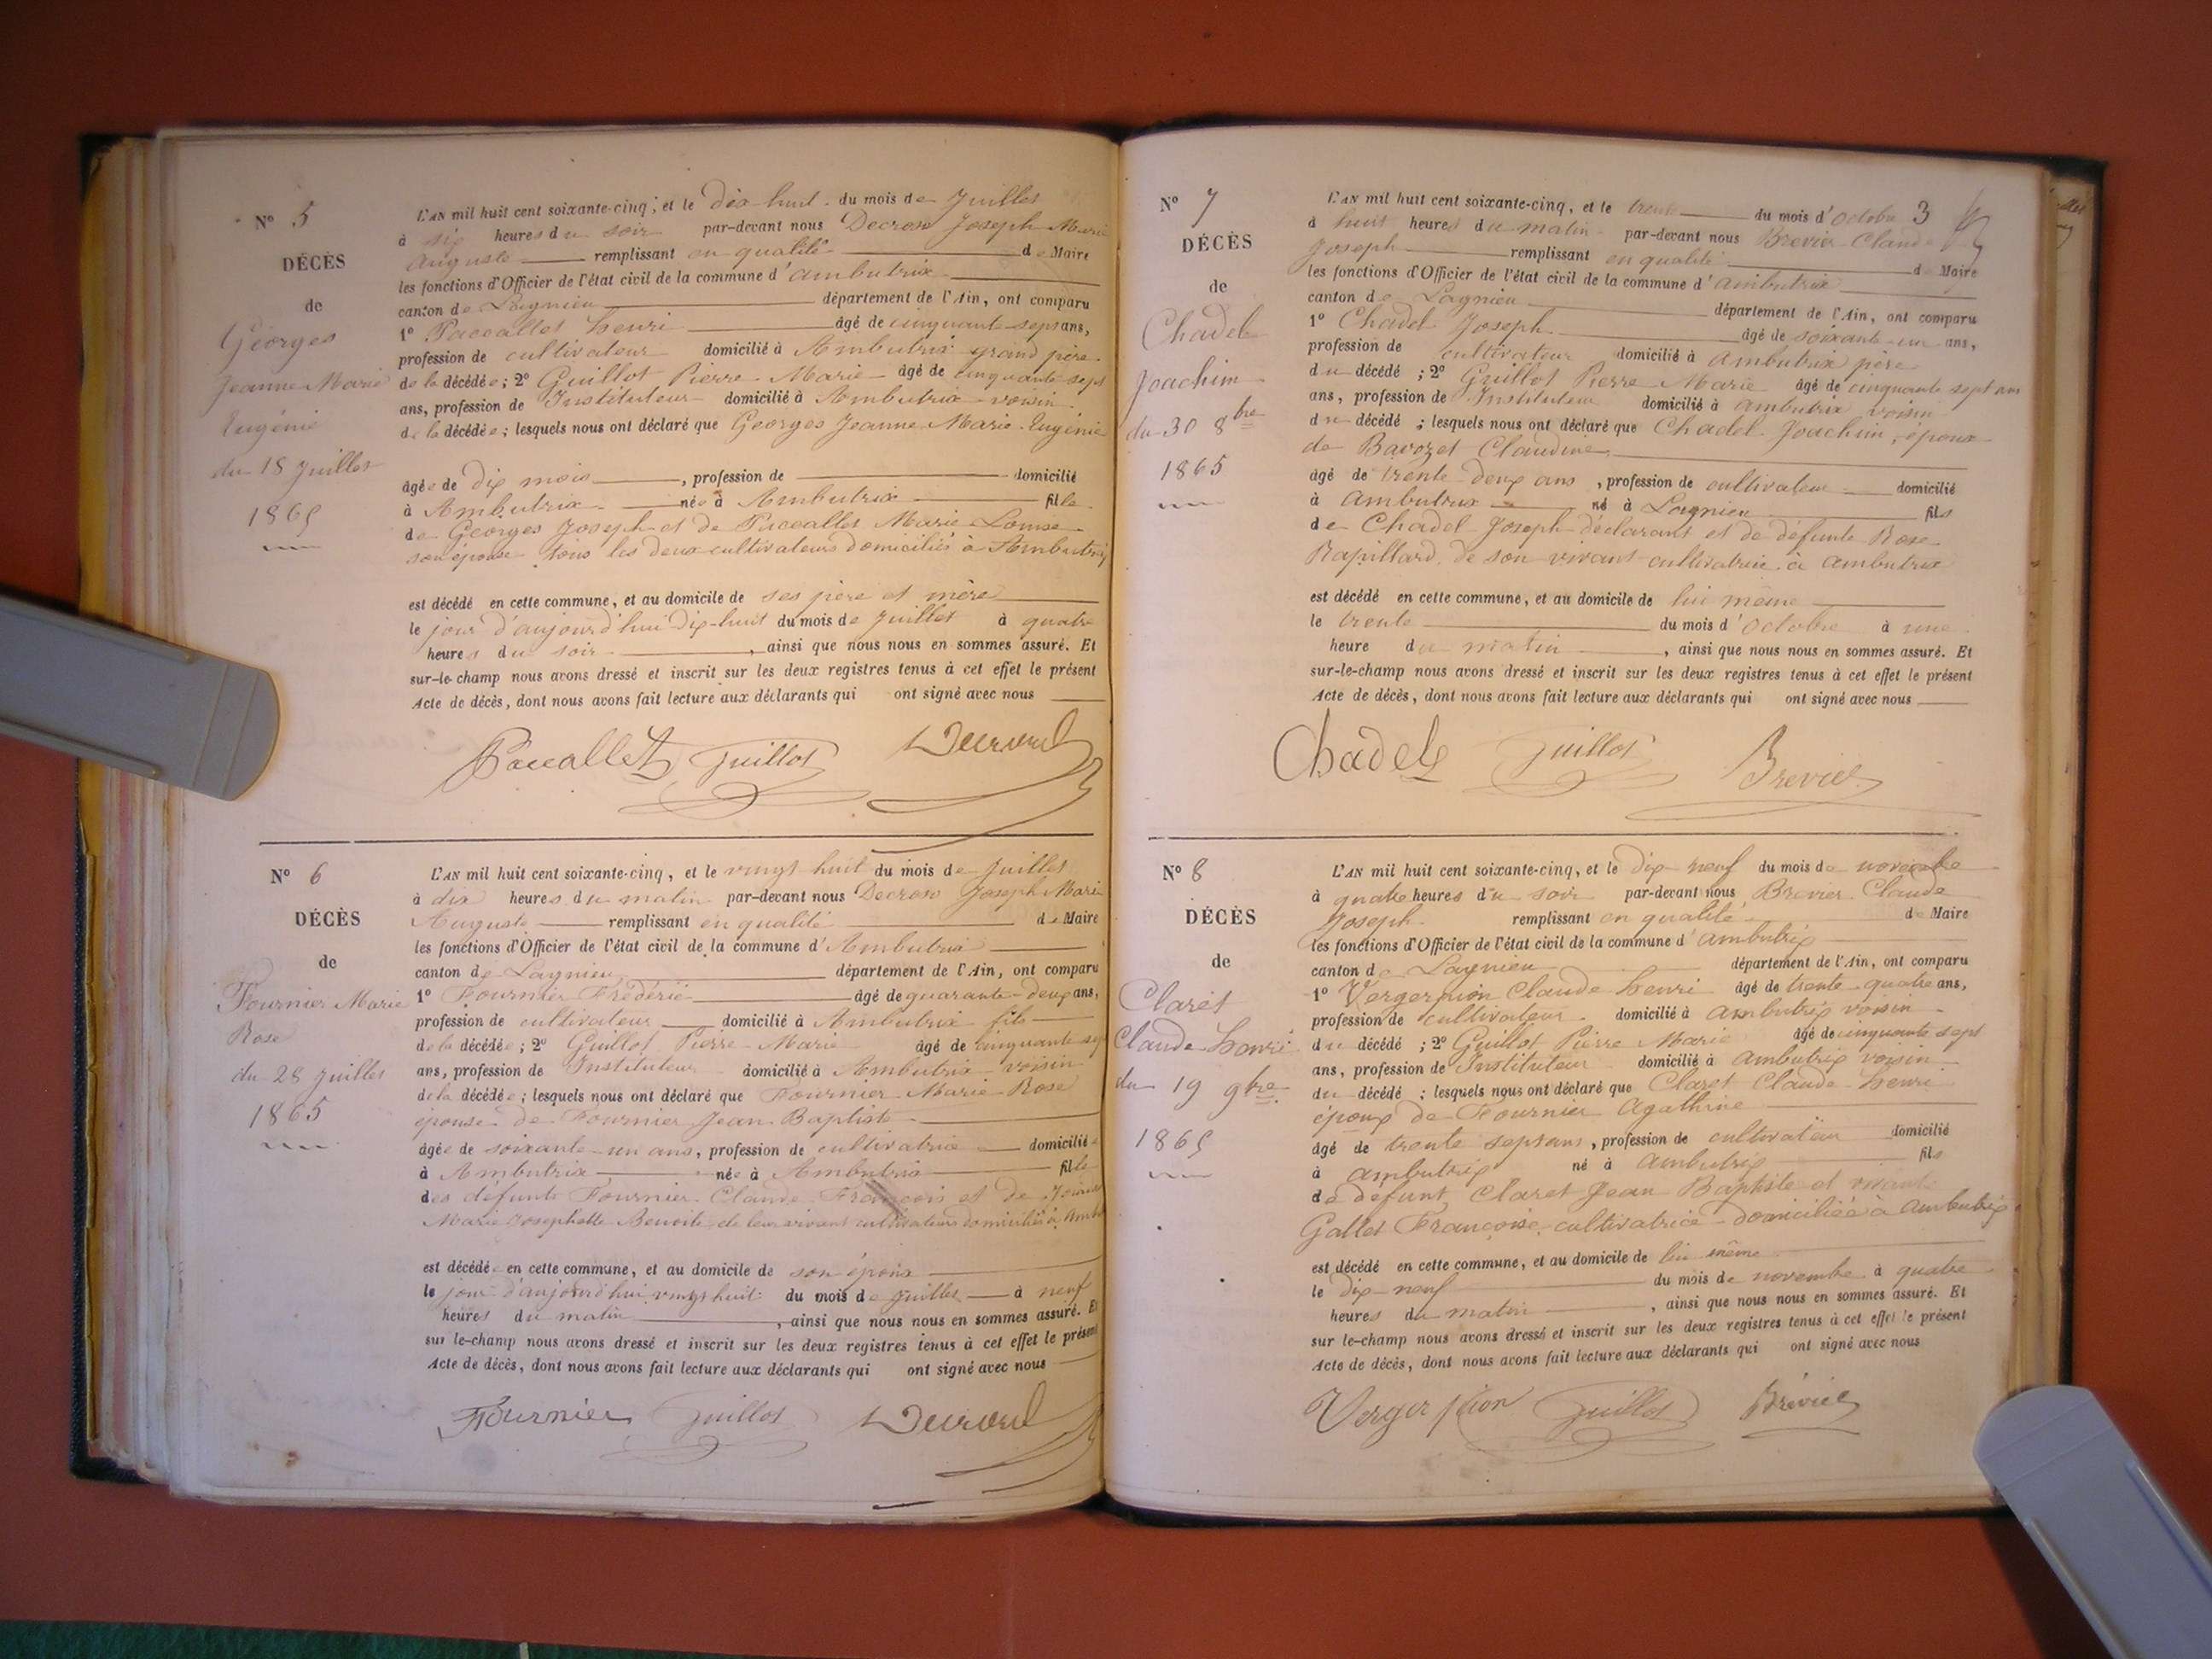 N° 5
DÉCÈS
de
Georges
Jeanne Marie
Eugénie
du 18 Juillet
1865
L'AN mil huit cent soixante-cinq, et le dix huit du mois de Juillet
à six heures du soir par-devant nous Decroso Joseph Marie
Auguste remplissant en qualité de Maire
les fonctions d'Officier de l'état civil de la commune d'Ambutrix
canton de Lagnieu département de l'Ain, ont comparu
1° Paccallet henri âgé de cinquante sept ans,
profession de cultivateur domicilié à Ambutrix grand père
de la décédée; 2° Guillot Pierre Marie âgé de cinquante sept
ans, profession de Instituteur domicilié à Ambutrix voisin
de la décédée; lesquels nous ont déclaré que Georges Jeanne Marie Eugénie
âgée de dix mois, profession de domicilié
à Ambutrix née à Ambutrix fille
de Georges Joseph et de Paccallet Marie Louise
son épouse tous les deux cultivateurs domiciliés à Ambutrix
est décédé en cette commune, et au domicile de ses père et mère
le jour d'aujourd'hui dix-huit du mois de Juillet à quatre
heures du soir, ainsi que nous nous en sommes assuré. Et
sur-le-champ nous avons dressé et inscrit sur les deux registres tenus à cet effet le présent
Acte de décès, dont nous avons fait lecture aux déclarants qui ont signé avec nous
Paccallet Guillot
N° 6
DÉCÈS
de
Fournier Marie
Rose
du 28 Juillet
1865
L'AN mil huit cent soixante-cinq, et le vingt huit du mois de Juillet
à dix heures du matin par-devant nous Decroso Joseph Marie
Auguste remplissant en qualité de Maire
les fonctions d'Officier de l'état civil de la commune d'Ambutrix
canton de Lagnieu département de l'Ain, ont comparu
1° Fournier Frédéric âgé de quarante-deux ans,
profession de cultivateur domicilié à Ambutrix fils
de la décédée; 2° Guillot Pierre Marie âgé de cinquante sept
ans, profession de Instituteur domicilié à Ambutrix voisin
de la décédée; lesquels nous ont déclaré que Fournier Marie Rose
épouse de Fournier Jean Baptiste
âgée de soixante-un ans, profession de cultivatrice domiciliée
à Ambutrix née à Ambutrix fille
des défunts Fournier Claude François et de
Marie Josephette Benoite de leur vivant cultivateurs domiciliés à Amb
est décédée en cette commune, et au domicile de son époux
le jour d'aujourd'hui vingt huit du mois de Juillet à neuf
heures du matin, ainsi que nous nous en sommes assuré. Et
sur le-champ nous avons dressé et inscrit sur les deux registres tenus à cet effet le présent
Acte de décès, dont nous avons fait lecture aux déclarants qui ont signé avec nous
Fournier Guillot
N° 7
DÉCÈS
de
Chadel
Joachim
du 30 8bre
1865
3
L'AN mil huit cent soixante-cinq, et le trente du mois d'octobre
à huit heures du matin par-devant nous Brevier Claude
Joseph remplissant en qualité de Maire
les fonctions d'Officier de l'état civil de la commune d'ambutrix
canton de Lagnieu département de l'Ain, ont comparu
1° Chadel Joseph âgé de soixante-un ans,
profession de cultivateur domicilié à ambutrix père
du décédé; 2° Guillot Pierre Marie âgé de cinquante sept ans
ans, profession de Instituteur domicilié à ambutrix voisin
du décédé; lesquels nous ont déclaré que Chadel Joachim, époux
de Bavozet Claudine
âgé de trente deux ans, profession de cultivateur domicilié
à ambutrix né à Lagnieu fils
de Chadel Joseph déclarant et de défunte Rose
Rapillard, de son vivant cultivatrice à ambutrix
est décédé en cette commune, et au domicile de lui même
le trente du mois d'octobre à une
heure du matin, ainsi que nous nous en sommes assuré. Et
sur-le-champ nous avons dressé et inscrit sur les deux registres tenus à cet effet le présent
Acte de décès, dont nous avons fait lecture aux déclarants qui ont signé avec nous
Chadel Guillot Brevier
N° 8
DÉCÈS
de
Claret
Claude-henri
du 19 9bre
1865
L'AN mil huit cent soixante-cinq, et le dix neuf du mois de novembre
à quatre heures du soir par-devant nous Brevier Claude
Joseph remplissant en qualité de Maire
les fonctions d'Officier de l'état civil de la commune d'ambutrix
canton de Lagnieu département de l'Ain, ont comparu
1° Vergerpion Claude henri âgé de trente quatre ans,
profession de cultivateur domicilié à ambutrix voisin
du décédé; 2° Guillot Pierre Marie âgé de cinquante sept
ans, profession de Instituteur domicilié à ambutrix voisin
du décédé; lesquels nous ont déclaré que Claret Claude henri
époux de Fournier Agathine
âgé de trente sept ans, profession de cultivateur domicilié
à ambutrix né à ambutrix fils
de défunt Claret Jean Baptiste et vivante
Gallet Françoise cultivatrice domiciliée à ambutrix
est décédé en cette commune, et au domicile de lui même
le dix neuf du mois de novembre à quatre
heures du matin, ainsi que nous nous en sommes assuré. Et
sur le-champ nous avons dressé et inscrit sur les deux registres tenus à cet effet le présent
Acte de décès, dont nous avons fait lecture aux déclarants qui ont signé avec nous
Vergerpion Guillot Brévier